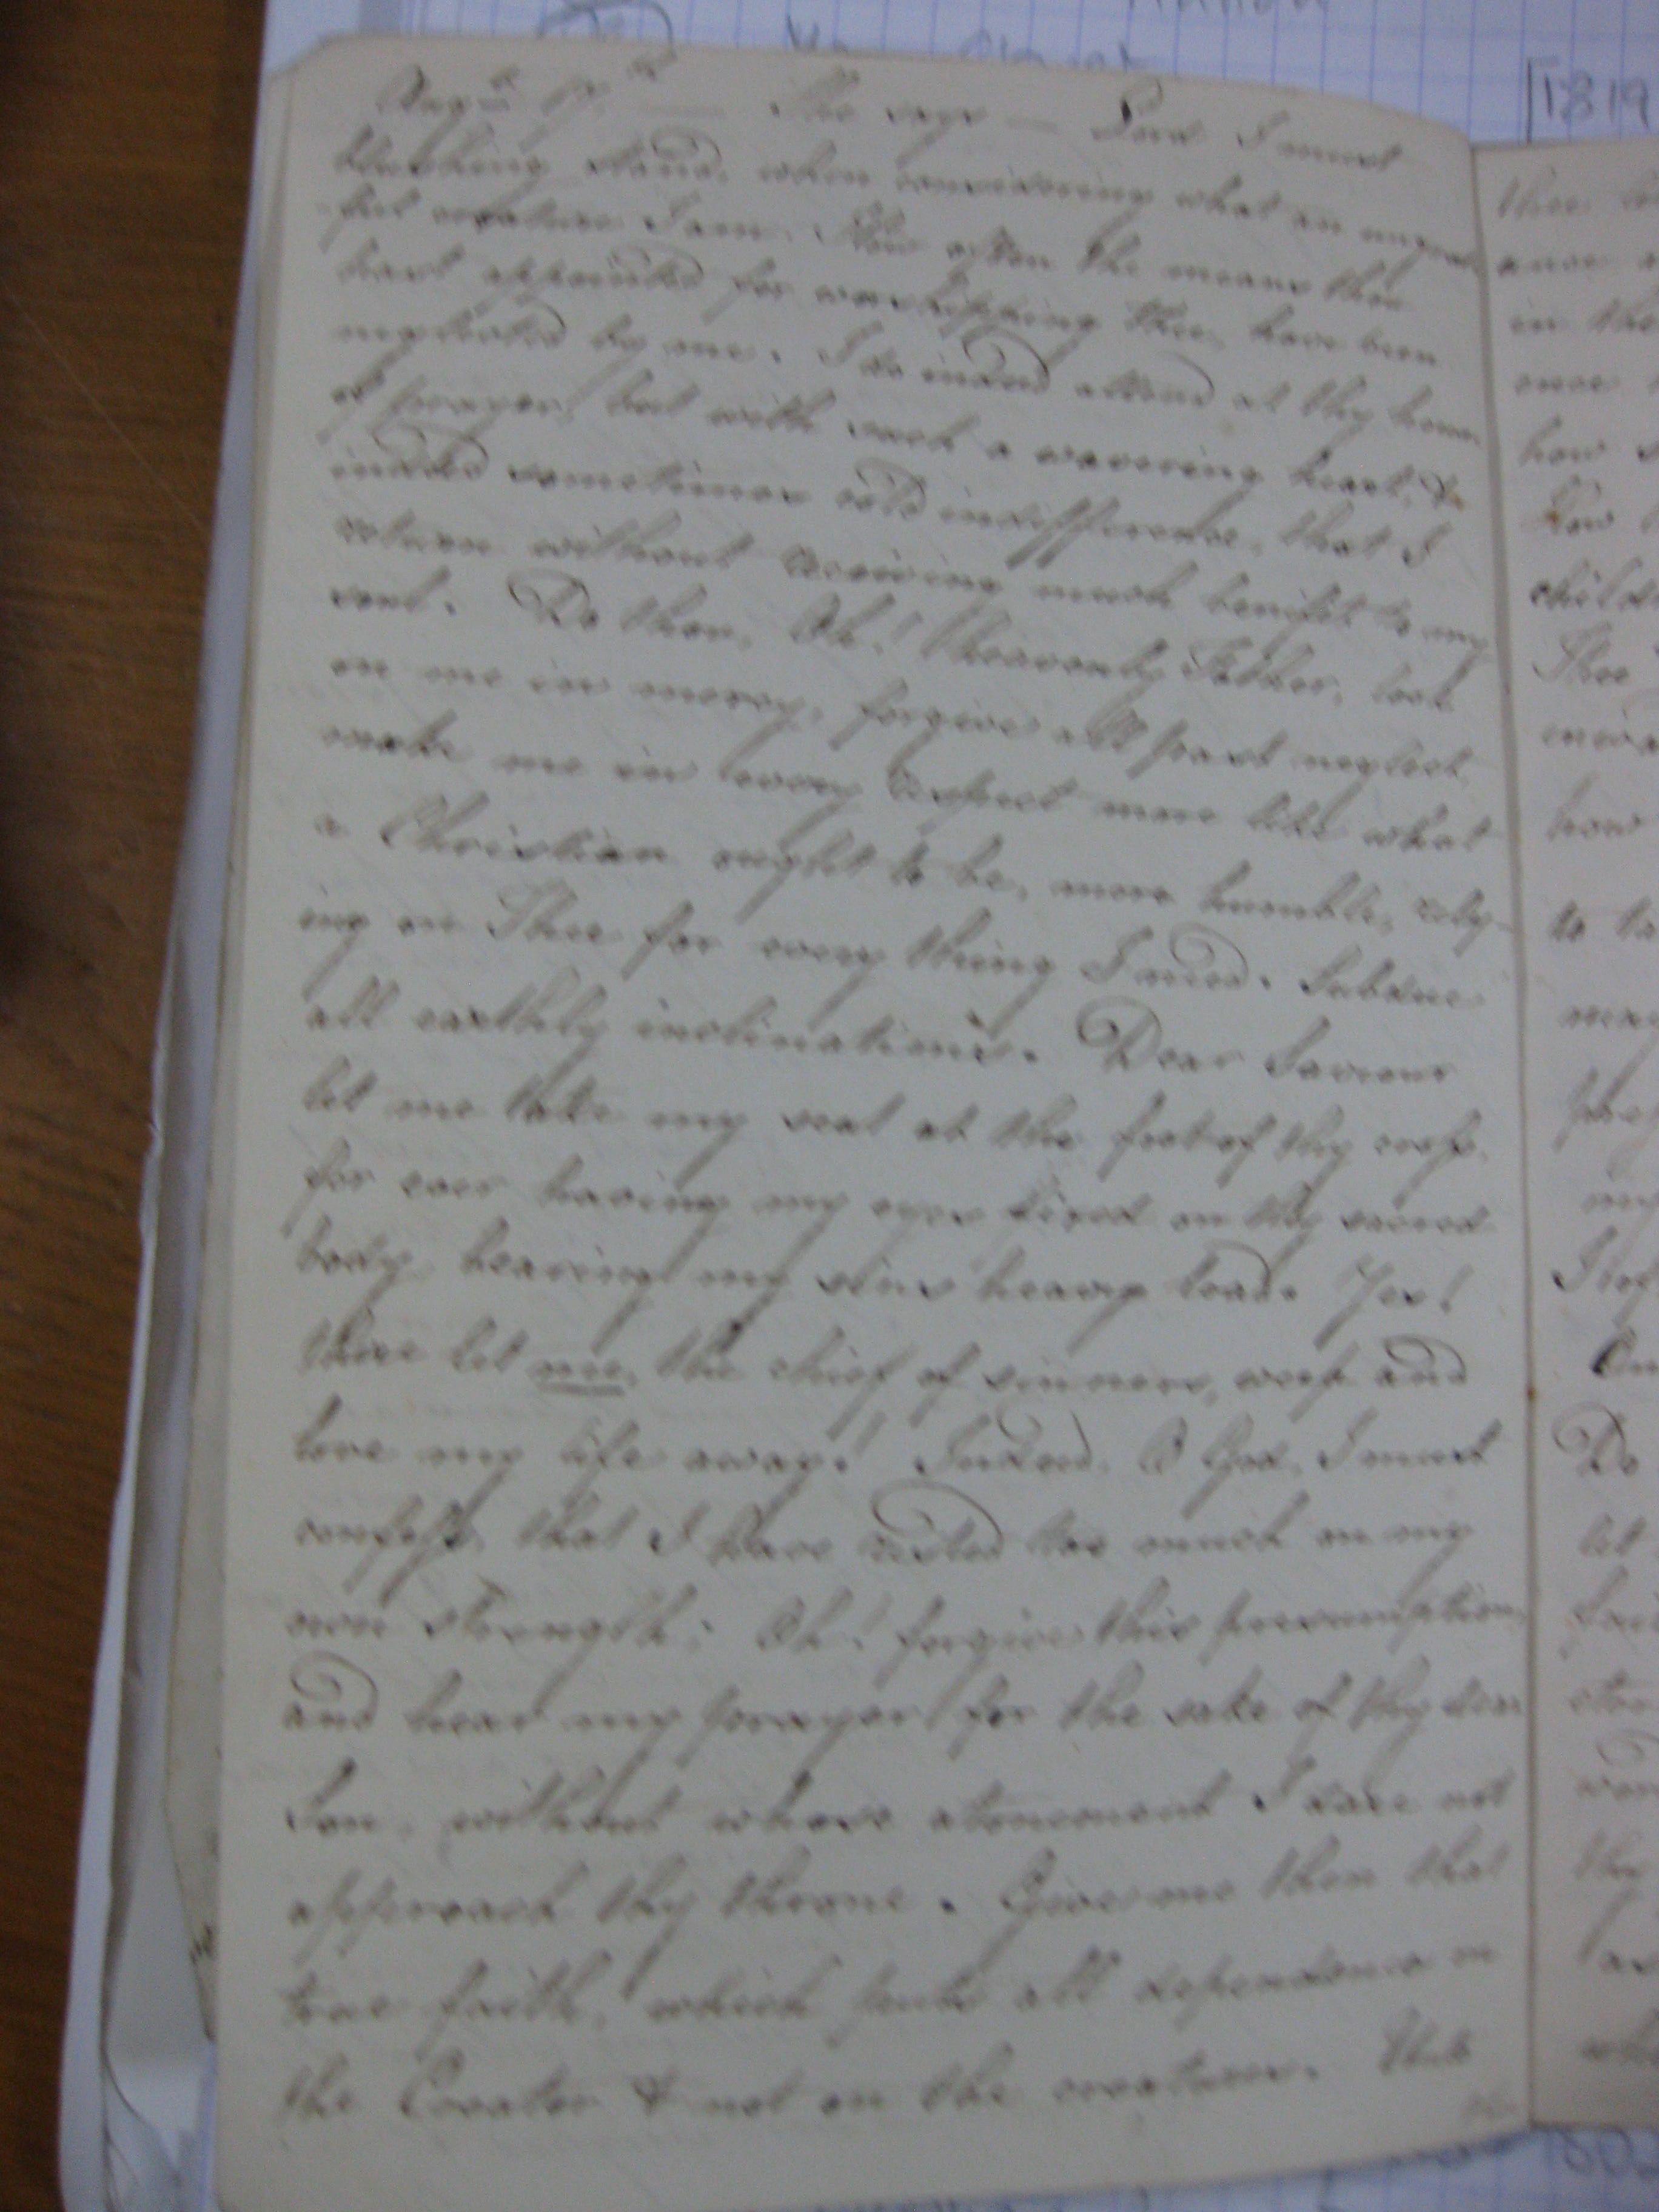 Augst 17th — She says — Lord I must
blushing stand, when considering what an ungrate
ful creature I am. How often the means thou
hast appointed for worshipping thee, have been
neglected by me. I do indeed attend at thy house
of prayer, but with such a wavering heart, &
indeed sometimes cold indifference, that I
return without receiving much benifit to my
soul. Do thou, Oh! Heavenly Father, look
on me in mercy, forgive all past neglect
make me in every respect more like what
a Christian ought to be, more humble, rely-
ing on Thee for every thing I need. Subdue
all earthly inclinations. Dear Saviour
let me take my seat at the foot of thy cross
for ever having my eyes fixed on thy sacred
body bearing my sins' heavy load. Yes!
there let me, the chief of sinners, weep and
love my life away! Indeed, O God, I must
confess, that I have rested too much on my
own strength; Oh! forgive this presumption,
and hear my prayer for the sake of thy dear
Son, without whose atonement I dare not
approach thy throne. Give me then that
true faith, which puts all dependence on
the Creator & not on the creature. Unto
1819
thee
in the
how
Thee
how
may
my
Do
let
thy